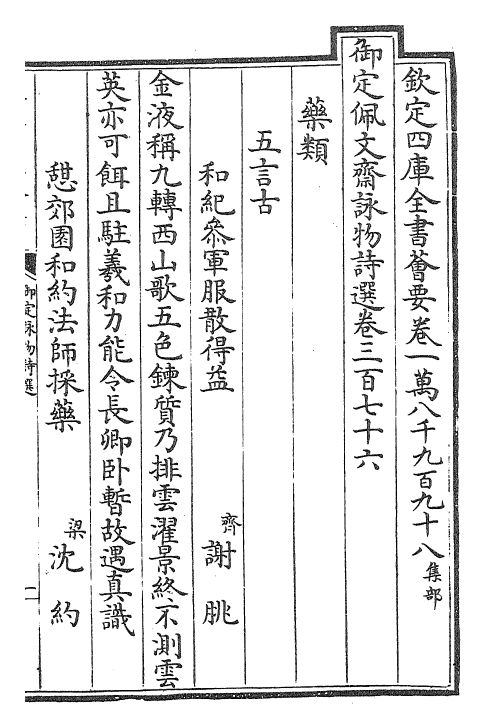 欽定四庫全書薈要卷一萬八千九百九十八集部
御定佩文齋詠物詩選卷三百七十六
藥類
五言古
和紀叅軍服散得益 齊 謝朓
金液稱九轉西山歌五色鍊質乃排雲濯景終不測雲
英亦可餌且駐羲和力能令長卿卧暫故遇真識
憇郊園和約法師採藥 梁 沈約
御定詠物詩選